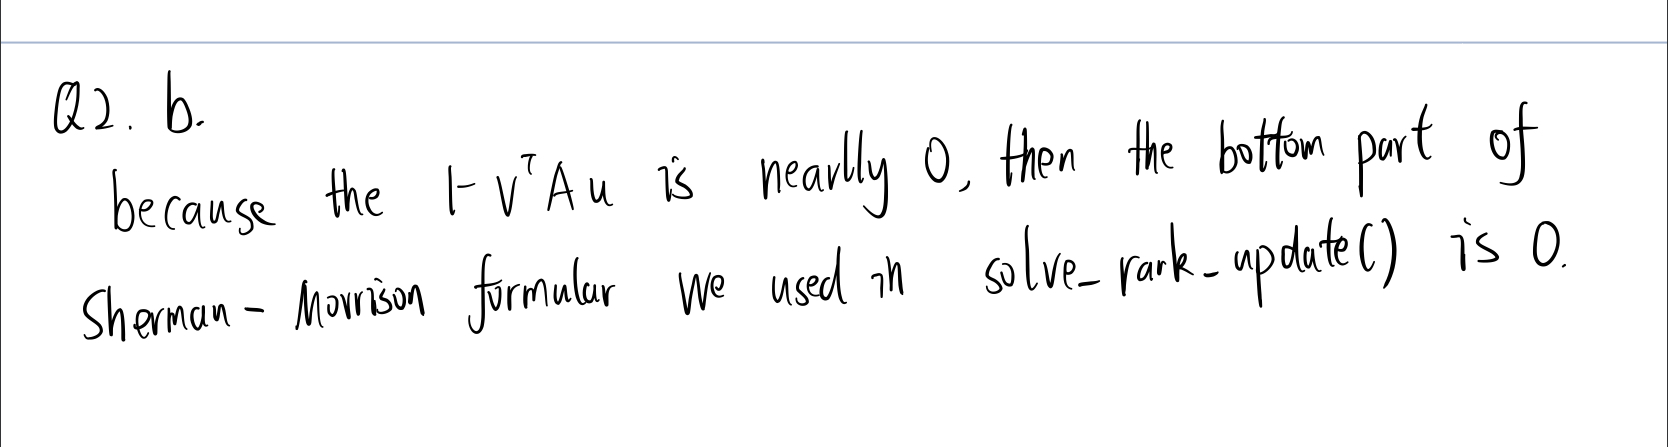 Q2. b.
because the 1-vᵀAu is nearlly 0, then the bottom part of
Sherman - Morrison formular we used in solve_rark_update() is 0.